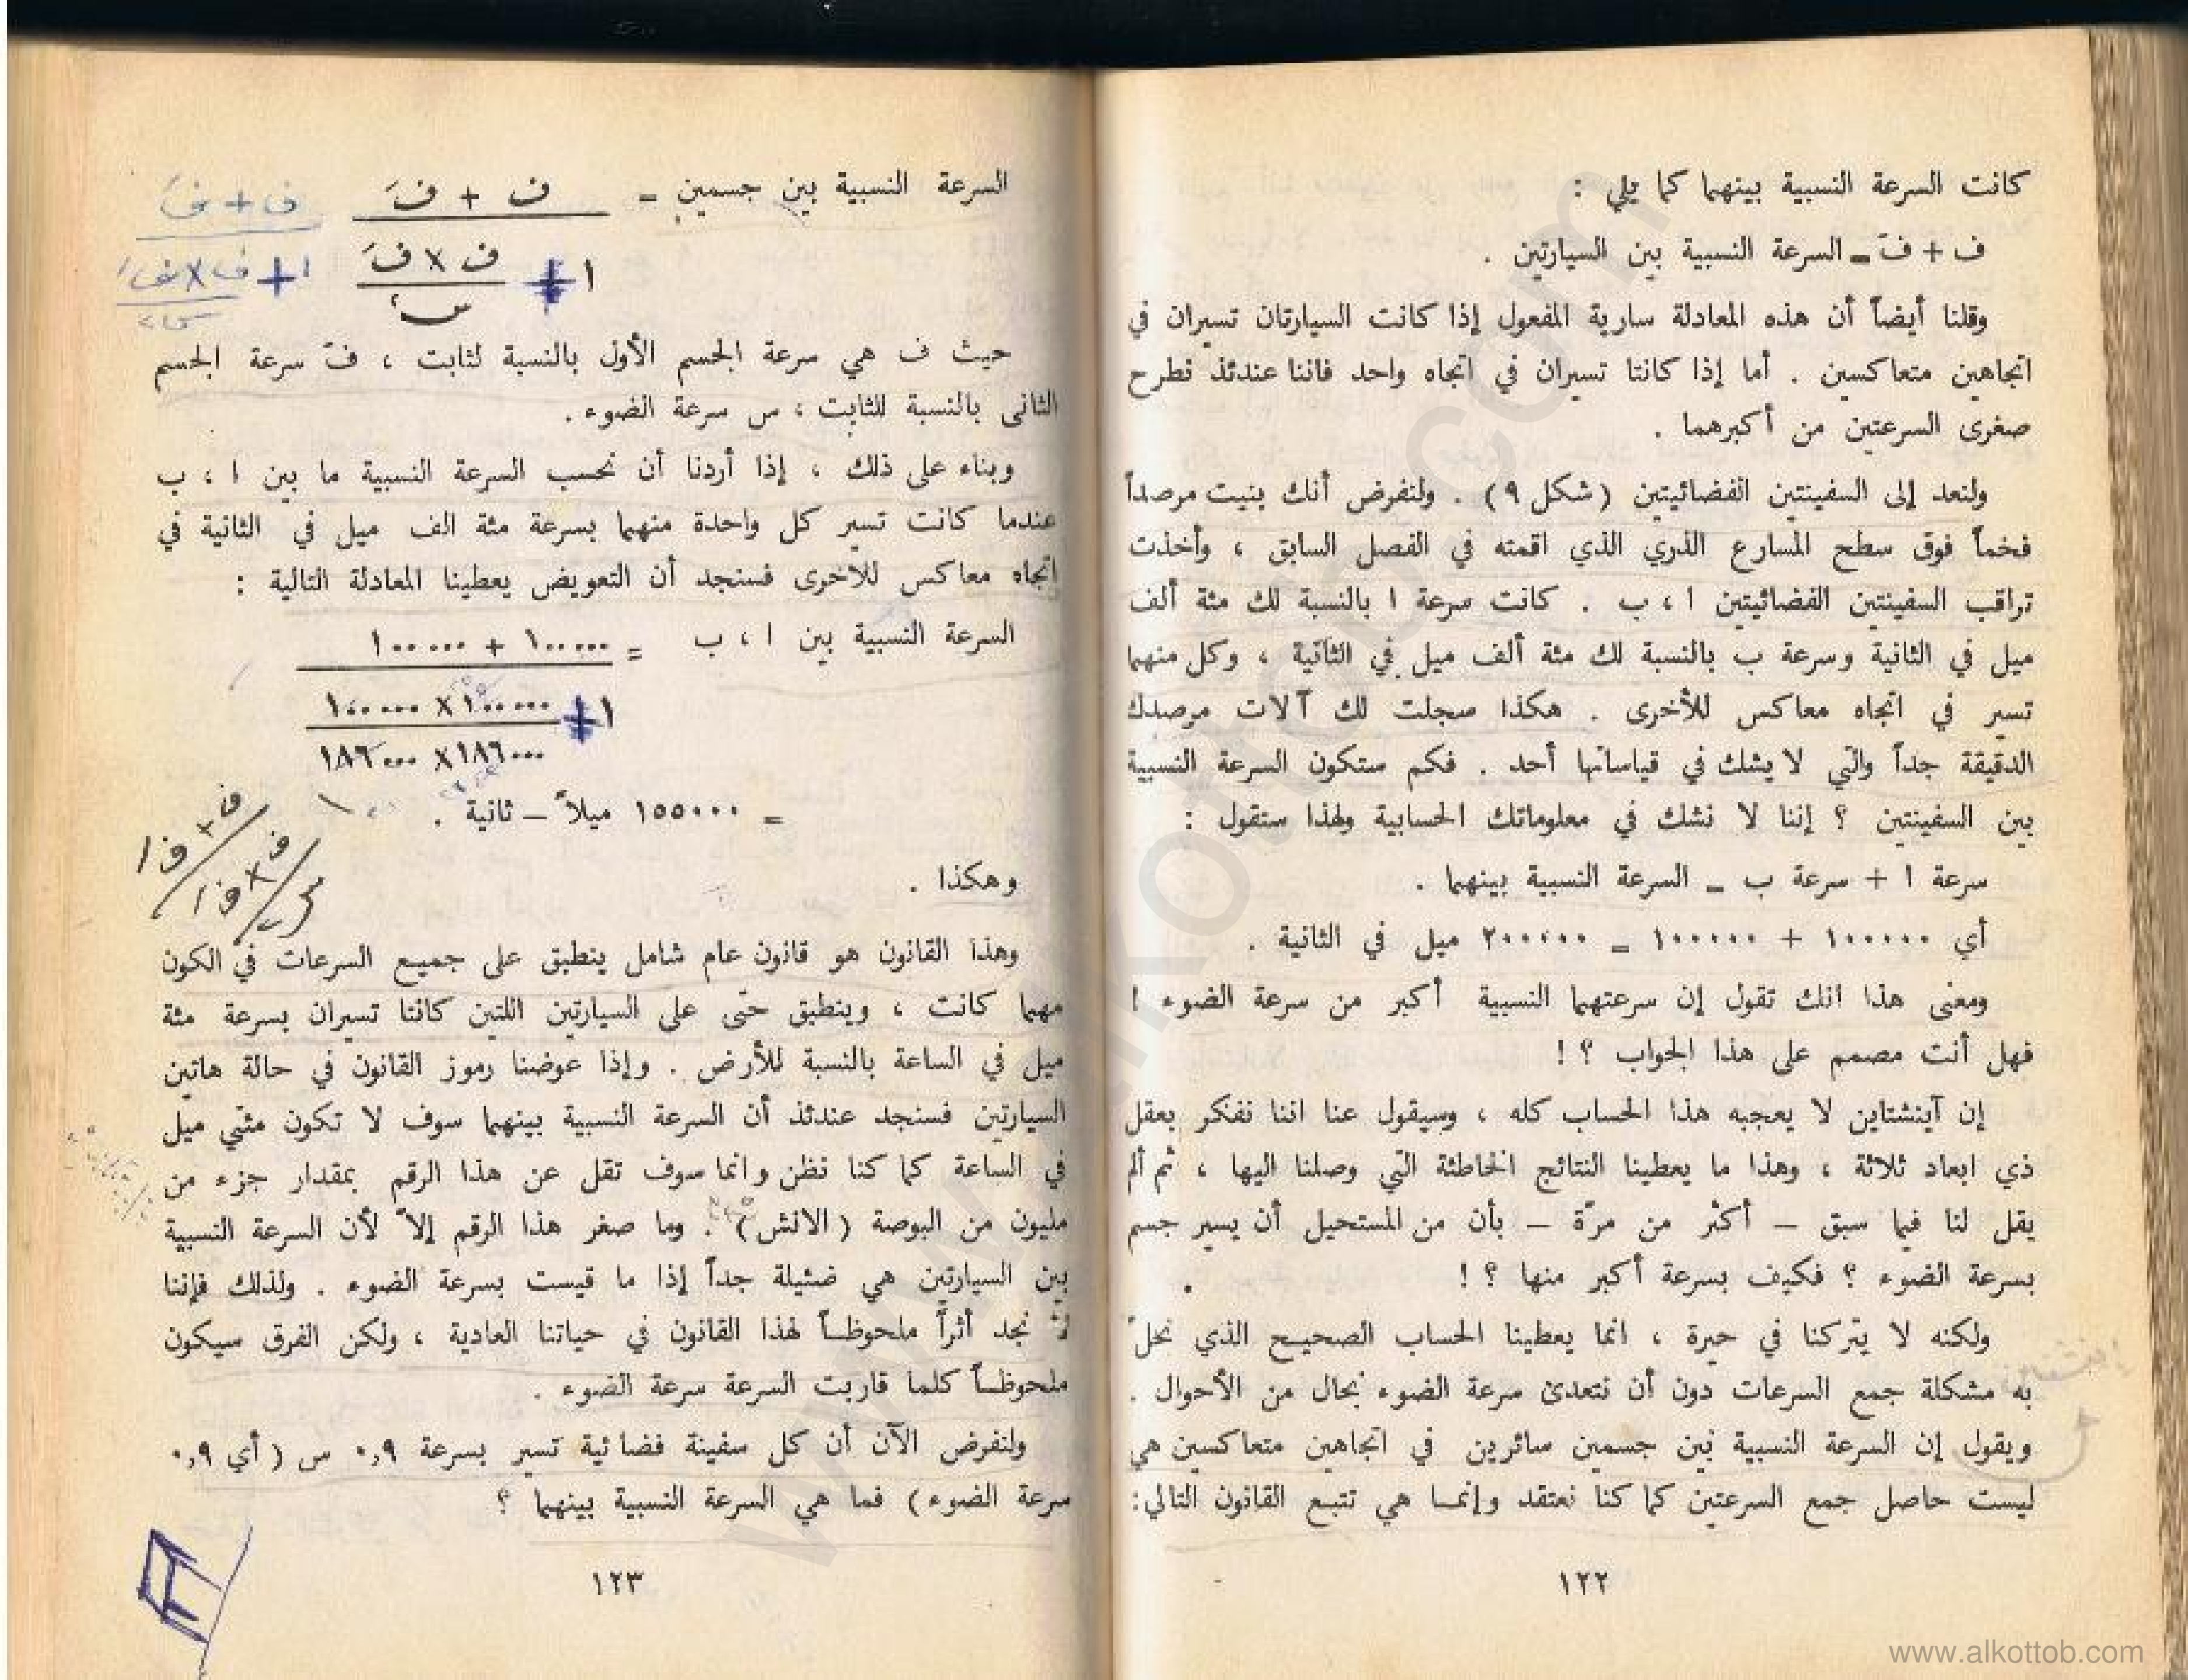 كانت السرعة النسبية بينهما كما يلي :
ف + فَ = السرعة النسبية بين السيارتين .
وقلنا أيضاً أن هذه المعادلة سارية المفعول إذا كانت السيارتان تسيران في
اتجاهين متعاكسين . أما إذا كانتا تسيران في اتجاه واحد فاننا عندئذ نطرح
صغرى السرعتين من أكبرهما .
ولنعد إلى السفينتين الفضائيتين (شكل ٩) . ولنفرض أنك بنيت مرصداً
فخماً فوق سطح المسارع الذري الذي اقمته في الفصل السابق ، وأخذت
تراقب السفينتين الفضائيتين ا ، ب . كانت سرعة ا بالنسبة لك مئة ألف
ميل في الثانية وسرعة ب بالنسبة لك مئة ألف ميل في الثانية ، وكل منهما
تسير في اتجاه معاكس للأخرى . هكذا سجلت لك آلات مرصدك
الدقيقة جداً والتي لا يشك في قياساتها أحد . فكم ستكون السرعة النسبية
بين السفينتين ؟ إننا لا نشك في معلوماتك الحسابية ولهذا ستقول :
سرعة ا + سرعة ب = السرعة النسبية بينهما .
أي ١٠٠٠٠٠ + ١٠٠٠٠٠ = ٢٠٠٠٠٠ ميل في الثانية .
ومعنى هذا انك تقول إن سرعتهما النسبية أكبر من سرعة الضوء !
فهل أنت مصمم على هذا الجواب ؟ !
إن آينشتاين لا يعجبه هذا الحساب كله ، وسيقول عنا اننا نفكر بعقل
ذي ابعاد ثلاثة ، وهذا ما يعطينا النتائج الخاطئة التي وصلنا اليها ، ثم ألم
يقل لنا فيما سبق – أكثر من مرّة – بأن من المستحيل أن يسير جسم
بسرعة الضوء ؟ فكيف بسرعة أكبر منها ؟ !
ولكنه لا يتركنا في حيرة ، انما يعطينا الحساب الصحيح الذي نحلّ
به مشكلة جمع السرعات دون أن نتعدى سرعة الضوء بحال من الأحوال .
ويقول إن السرعة النسبية بين جسمين سائرين في اتجاهين متعاكسين هي
ليست حاصل جمع السرعتين كما كنا نعتقد وإنما هي تتبع القانون التالي:
١٢٢
السرعة النسبية بين جسمين =
ف + فَ
١ + ف × فَ
س٢
ف + فَ
١ + ف × فَ
س٢
حيث ف هي سرعة الجسم الأول بالنسبة لثابت ، فَ سرعة الجسم
الثانى بالنسبة للثابت ، س سرعة الضوء .
وبناء على ذلك ، إذا أردنا أن نحسب السرعة النسبية ما بين ا ، ب
عندما كانت تسير كل واحدة منهما بسرعة مئة الف ميل في الثانية في
اتجاه معاكس للاخرى فسنجد أن التعويض يعطينا المعادلة التالية :
السرعة النسبية بين ا ، ب =
١٠٠٠٠٠ + ١٠٠٠٠٠
١ + ١٠٠٠٠٠ × ١٠٠٠٠٠
١٨٦٠٠٠ × ١٨٦٠٠٠
= ١٥٥٠٠٠ ميلاً – ثانية .
وهكذا .
وهذا القانون هو قانون عام شامل ينطبق على جميع السرعات في الكون
مهما كانت ، وينطبق حتى على السيارتين اللتين كانتا تسيران بسرعة مئة
ميل في الساعة بالنسبة للأرض . وإذا عوضنا رموز القانون في حالة هاتين
السيارتين فسنجد عندئذ أن السرعة النسبية بينهما سوف لا تكون مئتي ميل
في الساعة كما كنا نظن وانما سوف تقل عن هذا الرقم بمقدار جزء من
مليون من البوصة (الانش) . وما صغر هذا الرقم إلاّ لأن السرعة النسبية
بين السيارتين هي ضئيلة جداً إذا ما قيست بسرعة الضوء . ولذلك فإننا
نجد أثراً ملحوظاً لهذا القانون في حياتنا العادية ، ولكن الفرق سيكون
ملحوظاً كلما قاربت السرعة سرعة الضوء .
ولنفرض الآن أن كل سفينة فضائية تسير بسرعة ٠,٩ س ( أي ٠,٩
سرعة الضوء ) فما هي السرعة النسبية بينهما ؟
١٢٣
www.alkottob.com